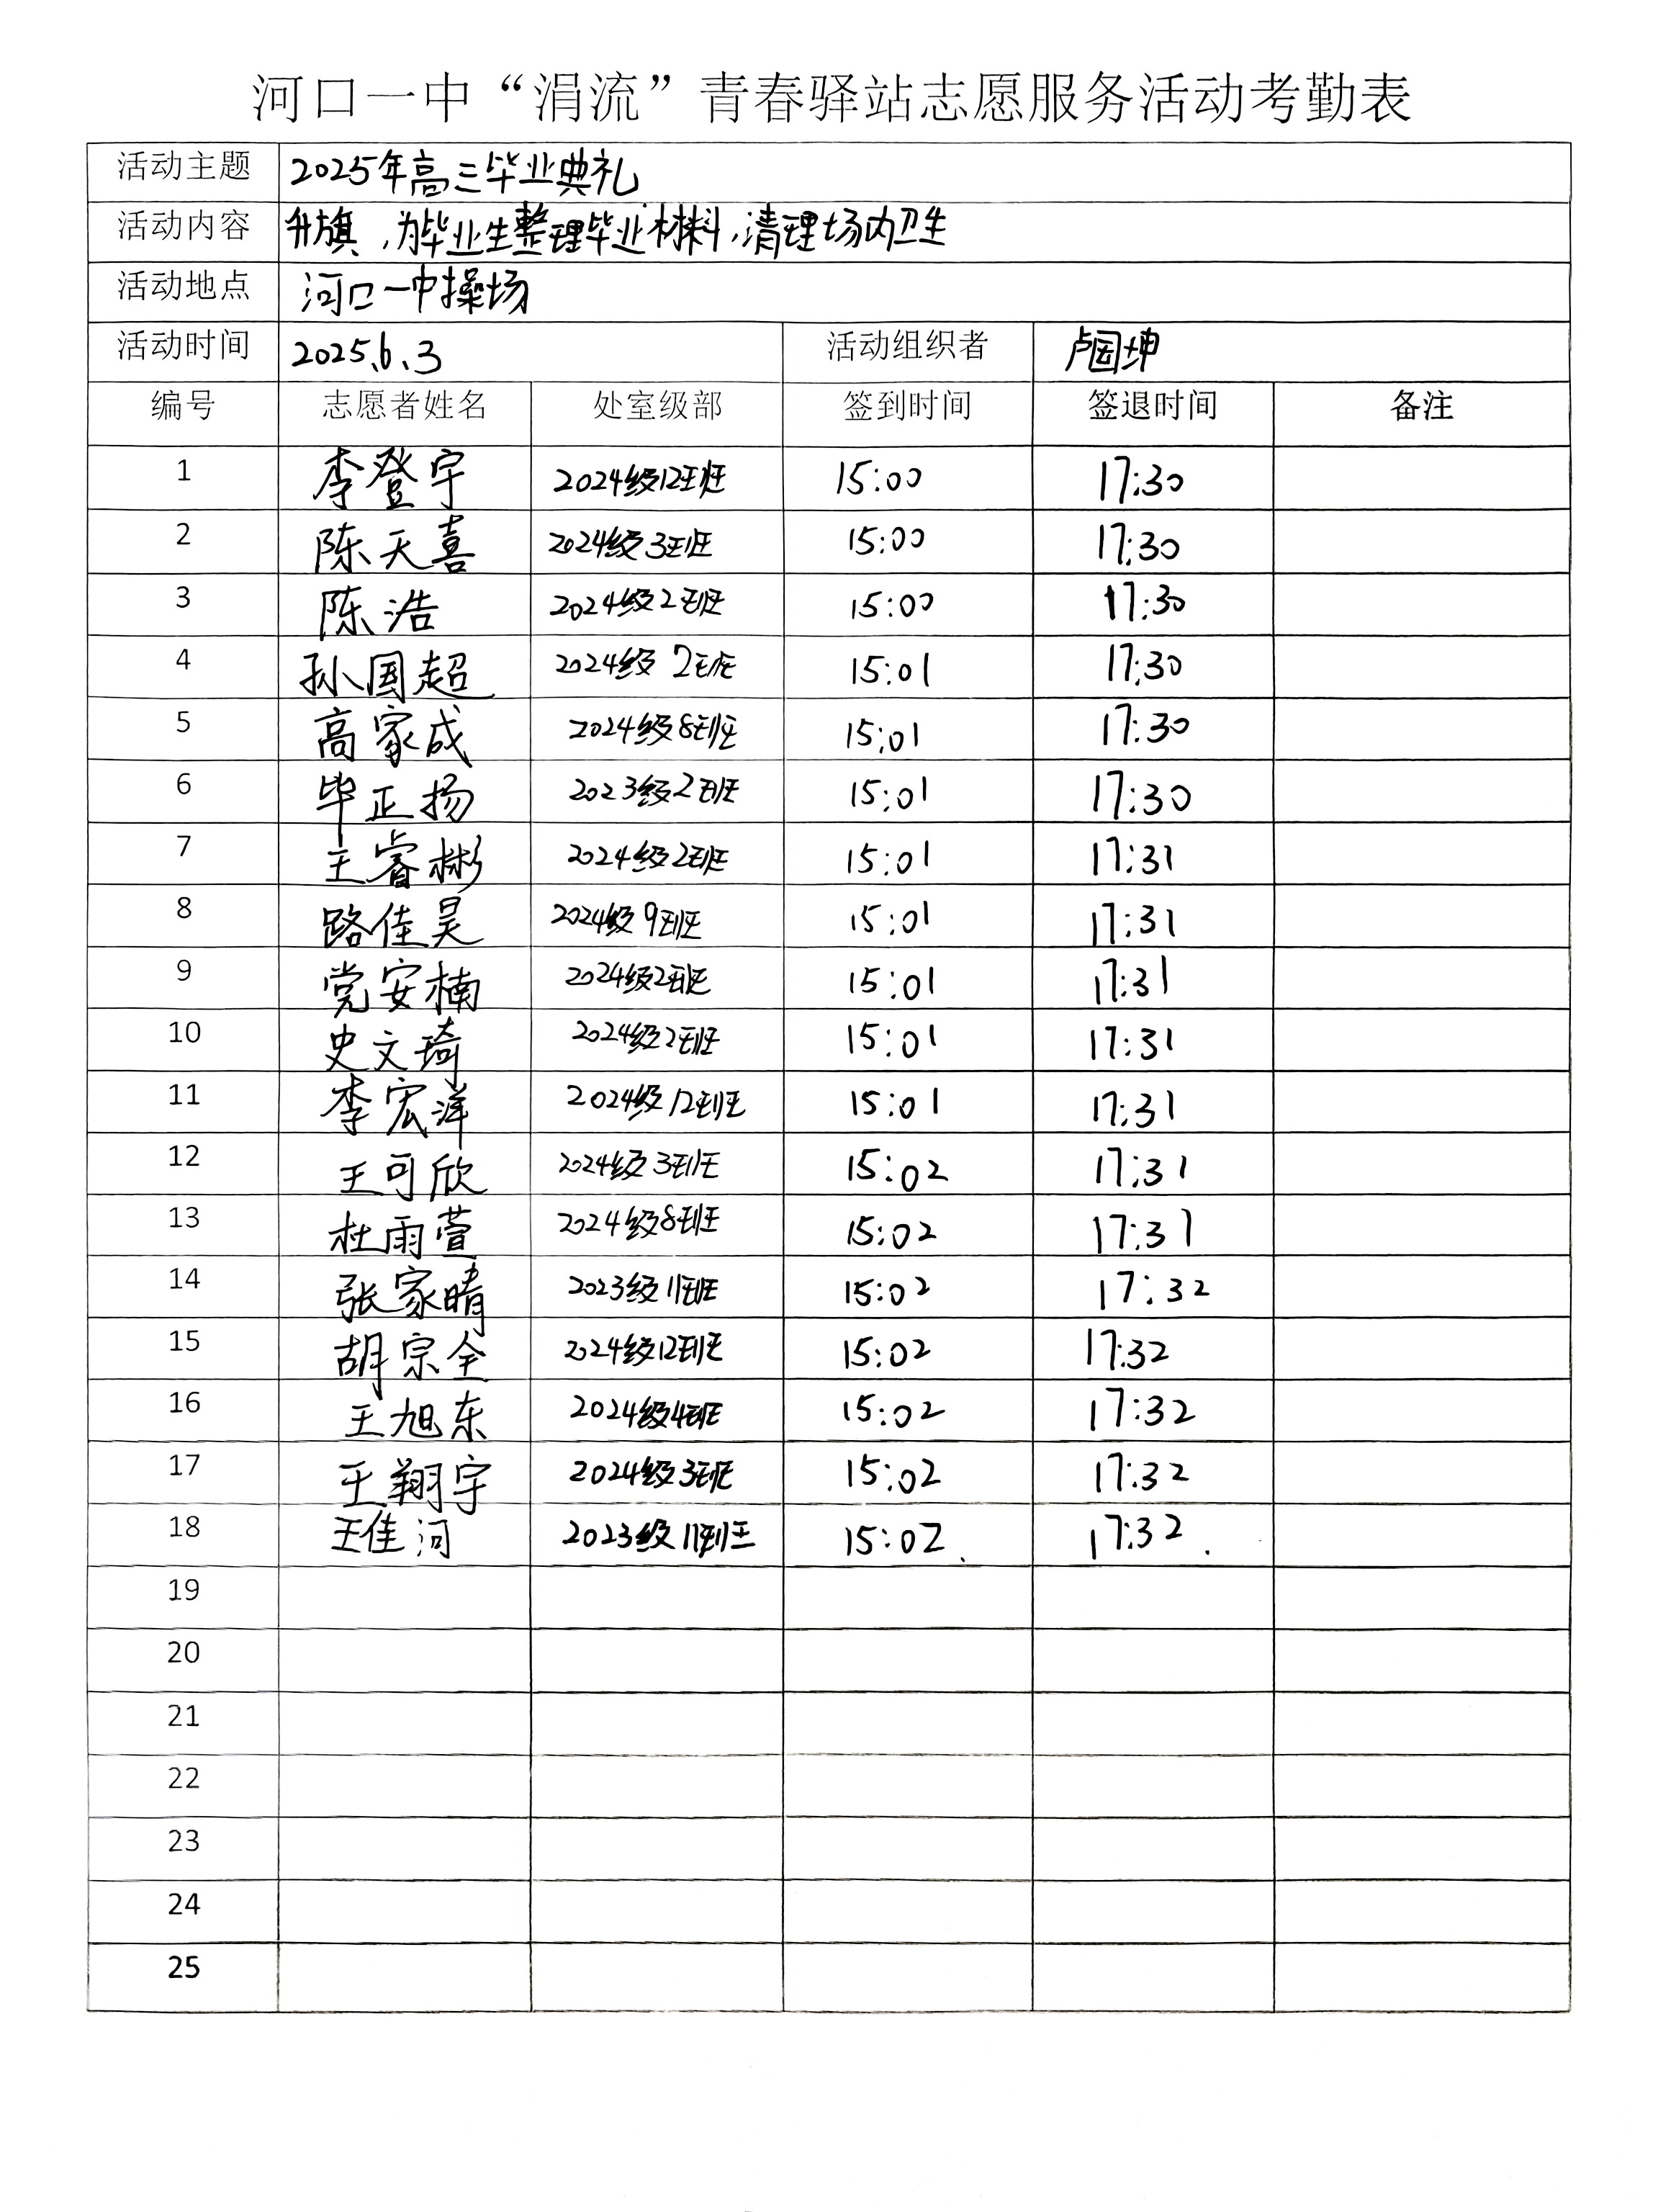 河口一中“涓流”青春驿站志愿服务活动考勤表
活动主题 2025年高三毕业典礼
活动内容 升旗，为毕业生整理毕业材料，清理场内卫生
活动地点 河口一中操场
活动时间 2025.6.3 活动组织者 卢国坤
编号 志愿者姓名 处室级部 签到时间 签退时间 备注
1 李登宇 2024级12班 15:00 17:30
2 陈天喜 2024级3班 15:00 17:30
3 陈浩 2024级2班 15:00 17:30
4 孙国超 2024级2班 15:01 17:30
5 高家成 2024级8班 15:01 17:30
6 毕正扬 2023级2班 15:01 17:30
7 王睿彬 2024级2班 15:01 17:31
8 路佳昊 2024级9班 15:01 17:31
9 党安楠 2024级2班 15:01 17:31
10 史文琦 2024级2班 15:01 17:31
11 李宏洋 2024级12班 15:01 17:31
12 王可欣 2024级3班 15:02 17:31
13 杜雨萱 2024级8班 15:02 17:31
14 张家晴 2023级11班 15:02 17:32
15 胡宗全 2024级12班 15:02 17:32
16 王旭东 2024级4班 15:02 17:32
17 王翔宇 2024级3班 15:02 17:32
18 王佳河 2023级11班 15:02 17:32
19
20
21
22
23
24
25